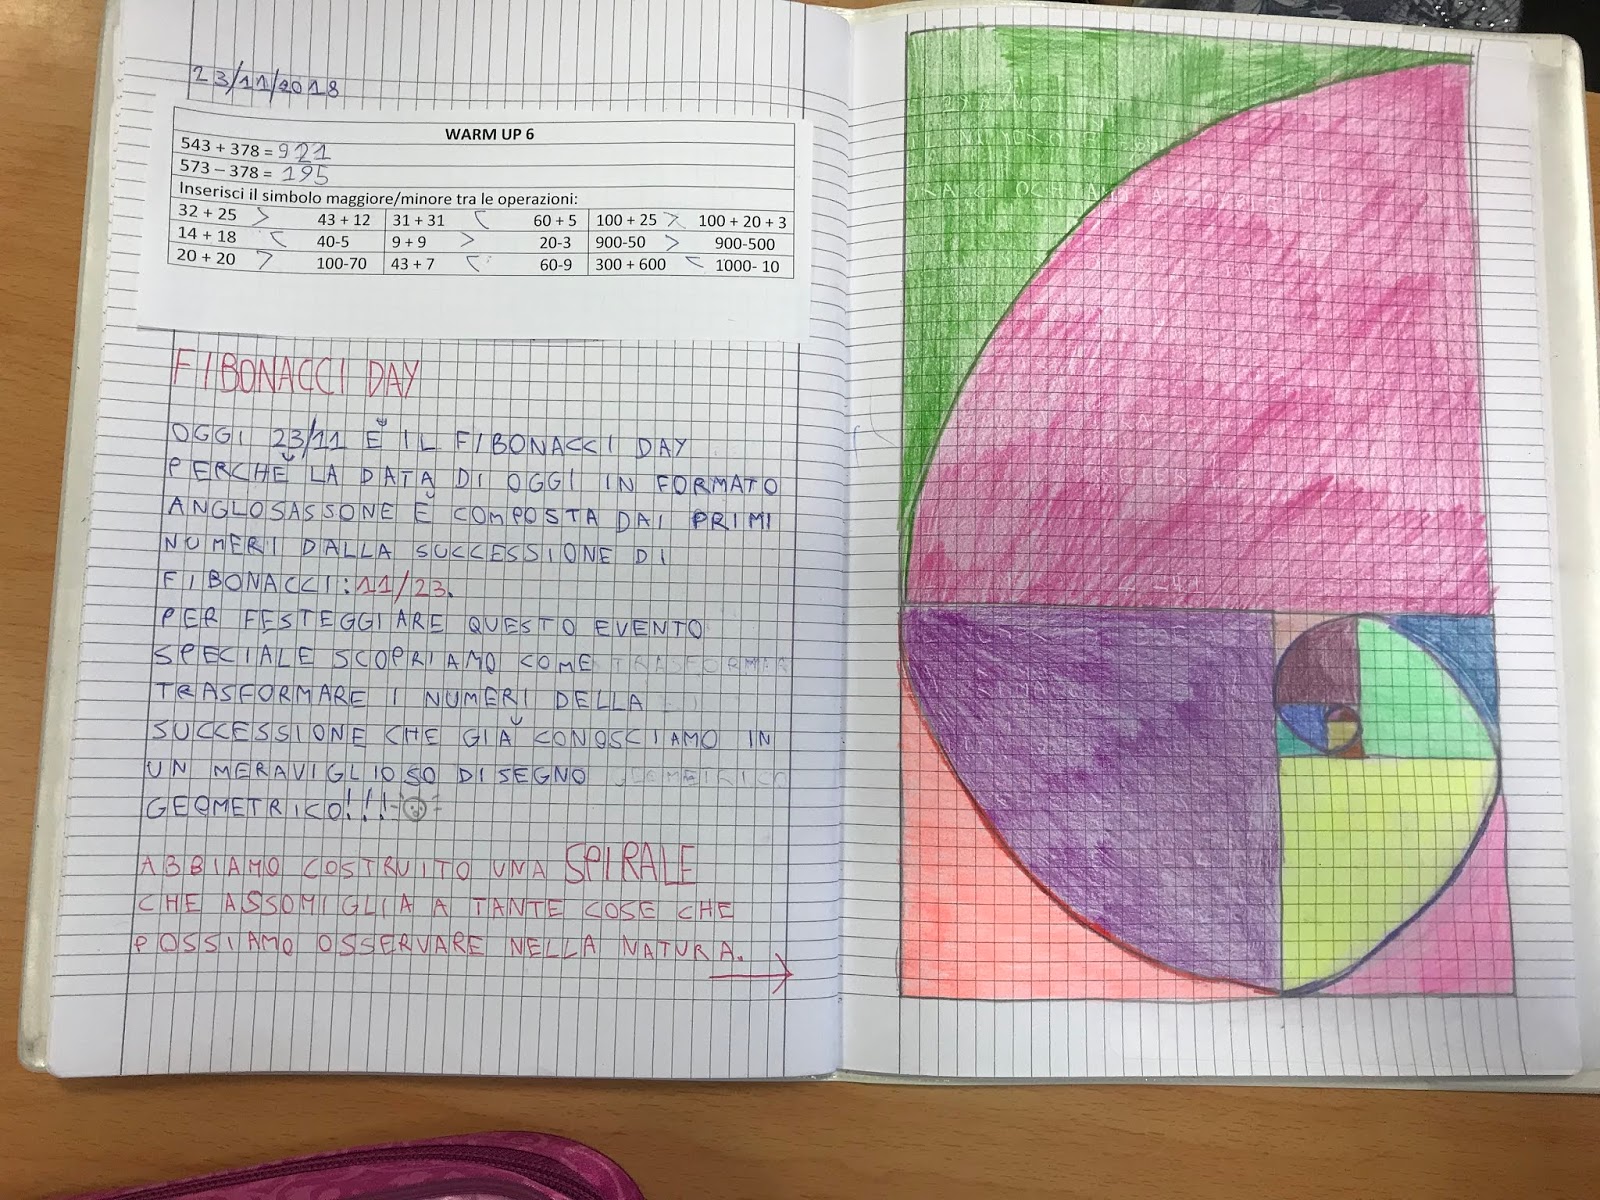 23/11/2018
WARM UP 6
543 + 378 = 921
573 – 378 = 195
Inserisci il simbolo maggiore/minore tra le operazioni:
32 + 25 > 43 + 12 31 + 31 < 60 + 5 100 + 25 > 100 + 20 + 3
14 + 18 < 40-5 9 + 9 > 20-3 900-50 > 900-500
20 + 20 > 100-70 43 + 7 < 60-9 300 + 600 < 1000- 10
FIBONACCI DAY
OGGI 23/11 È IL FIBONACCI DAY
PERCHÈ LA DATA DI OGGI IN FORMATO
ANGLOSASSONE È COMPOSTA DAI PRIMI
NUMERI DALLA SUCCESSIONE DI
FIBONACCI: 11/23.
PER FESTEGGIARE QUESTO EVENTO
SPECIALE SCOPRIAMO COME
TRASFORMARE I NUMERI DELLA
SUCCESSIONE CHE GIÀ CONOSCIAMO IN
UN MERAVIGLIOSO DISEGNO
GEOMETRICO!!!
ABBIAMO COSTRUITO UNA SPIRALE
CHE ASSOMIGLIA A TANTE COSE CHE
POSSIAMO OSSERVARE NELLA NATURA.